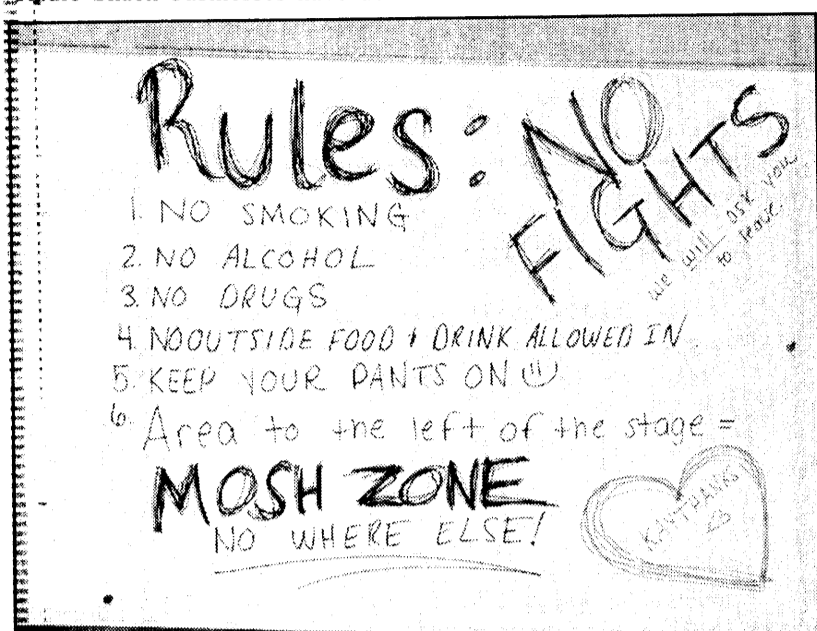 Rules:
NO
FIGHTS
we will ask you
to leave.
1. NO SMOKING
2. NO ALCOHOL
3. NO DRUGS
4. NO OUTSIDE FOOD & DRINK ALLOWED IN
5. KEEP YOUR PANTS ON
6. Area to the left of the stage =
MOSH ZONE
NO WHERE ELSE!
KAYTHANKS
<3